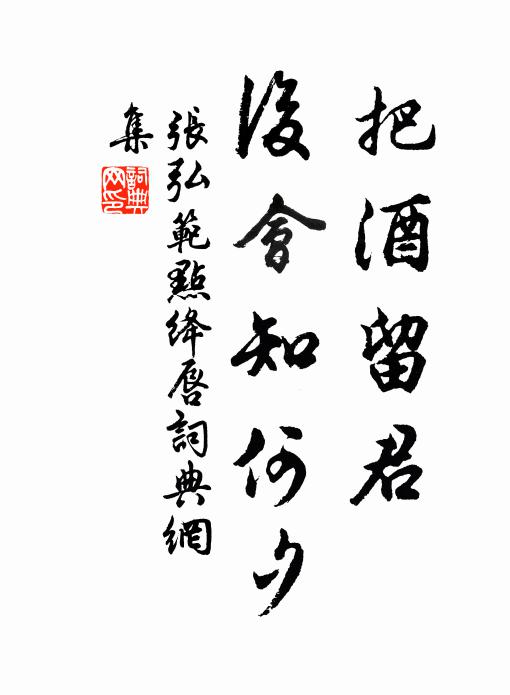 把酒留君
後會知何夕
張弘範點绛唇詞典網
集
詞典
网印